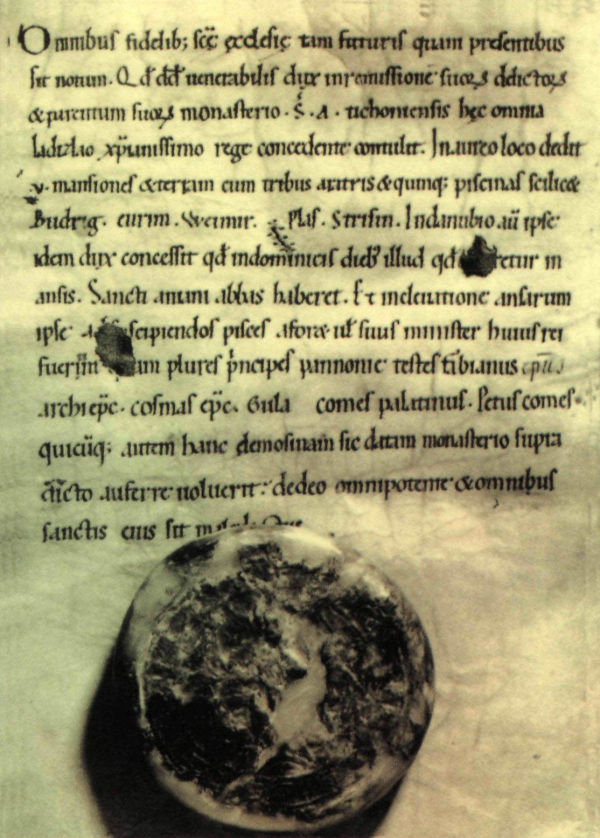 Omnibus fidelib; scę ęcclesię tam futuris quam presentibus
sit notum. Qd dd uenerabilis dux in remissione suoꝝ delictoꝝ
& parentum suoꝝ monasterio . S . A . tichoniensis hęc omnia
ladizlao xpianissimo rege concedente contulit. In aureo loco dedit
.v. mansiones & terram cum tribus aratris & quinq; piscinas scilic&
Budrig. eurim. Weimir. Plas. Strisin. In danubio aū ipse
idem dux concessit qd in dominicis dieb; illud qd in
ansis. Sancti aniani abbas haberet. Et in clausione ansarum
ipse pisces afora ul suus minister huius rei
plures pncipes pannonie testes
archi epc. cosmas epc. Gula comes palatinus. Petus comes.
quicūq; autem hanc elemosinam sic datam monasterio supra
dicto auferre uoluerit: de deo omnipotente & omnibus
sanctis eius sit